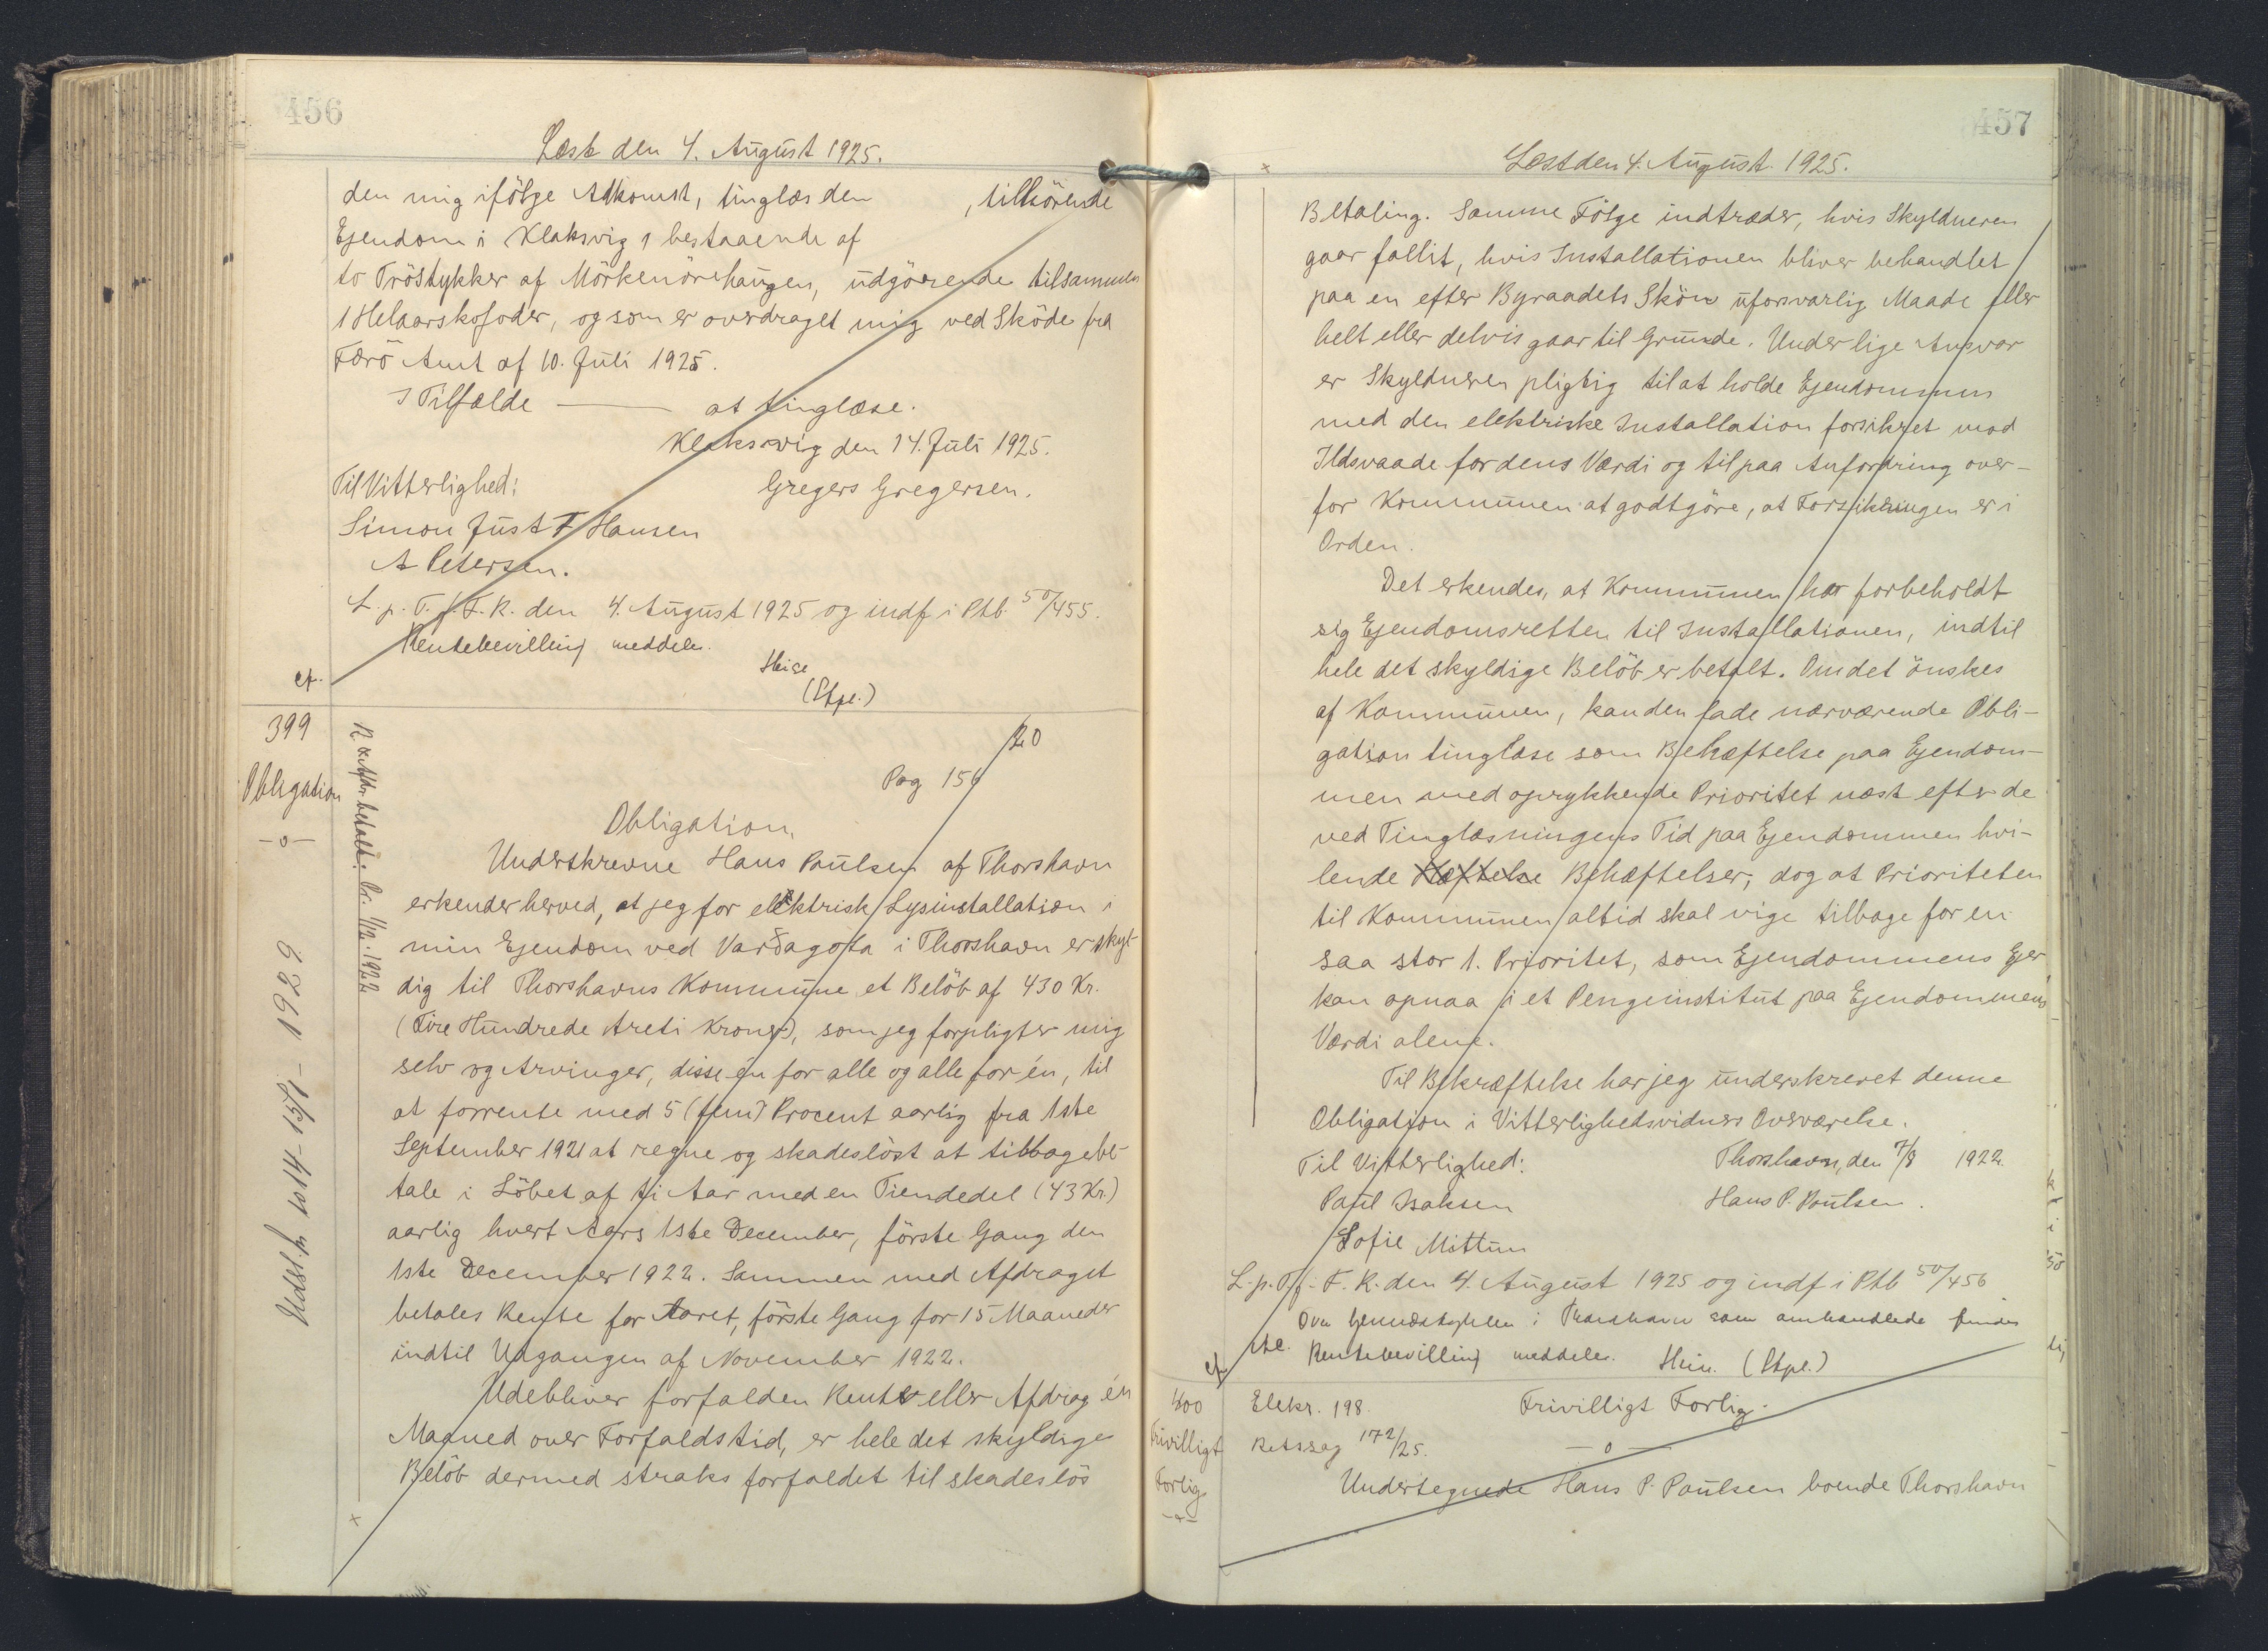 456
Læst den 4. August 1925.
den mig ifölge Adkomst, tinglæs den , tilhörende
Ejendom i Klaksvig, bestaaende af
to Tröstykker af Mörkenörehaugen, udgörende tilsammen
1 Helaarskofoder, og som er overdraget mig ved Sköde fra
Færö Amt af 10. Juli 1925.
I Tilfælde ——— at tinglæse.
Klaksvig den 14. Juli 1925.
Til Vitterlighed: Gregers Gregersen.
Simon Just F Hansen
A Petersen.
L. p. T. f. F. R. den 4. August 1925 og indf i Ptb. 50/455.
Rentebevilling meddeles.
Heise
(Stpl.)
cf.
399
Obligation
—o—
R. & Afdr. betalt. Pr. 1/12. 1922
Udsl. 1929
20
Pag 156
Obligation.
Underskrevne Hans Paulsen af Thorshavn
erkender herved, at jeg for elektrisk Lysinstallation i
min Ejendom ved Varðagöta i Thorshavn er skyl-
dig til Thorshavns Kommune et Belöb af 430 Kr.
(Fire Hundrede Treti Kroner), som jeg forpligter mig
selv og Arvinger, disse én for alle og alle for én, til
at forrente med 5 (fem) Procent aarlig fra 1ste
September 1921 at regne og skadeslöst at tilbagebe-
tale i Löbet af ti Aar med en Tiendedel (43 Kr.)
aarlig hvert Aars 1ste December, förste Gang den
1ste December 1922. Sammen med Afdraget
betales Rente for Aaret, förste Gang for 15 Maaneder
indtil Udgangen af November 1922.
Udebliver forfalden Rente eller Afdrag én
Maaned over Forfaldstid, er hele det skyldige
Belöb dermed straks forfaldet til skadeslös
457
Læst den 4. August. 1925.
Betaling. Samme Fölge indtræder, hvis Skyldneren
gaar fallit, hvis Installationen bliver behandlet
paa en efter Byraadets Skön uforsvarlig Maade eller
helt eller delvis gaar til Grunde. Under lige Ansvar
er Skyldneren pligtig til at holde Ejendommen
med den elektriske Installation forsikret mod
Ildsvaade for dens Værdi og til paa Anfordring over-
for Kommunen at godtgöre, at Forsikringen er i
Orden.
Det erkendes, at Kommunen har forbeholdt
sig Ejendomsretten til Installationen, indtil
hele det skyldige Belöb er betalt. Om det önskes
af Kommunen, kan den lade nærværende Obli-
gation tinglæse som Behæftelse paa Ejendom-
men med oprykkende Prioritet næst efter de
ved Tinglæsningens Tid paa Ejendommen hvi-
lende Hæftelse Behæftelser, dog at Prioriteten
til Kommunen altid skal vige tilbage for en
saa stor 1. Prioritet, som Ejendommens Ejer
kan opnaa i et Pengeinstitut paa Ejendommens
Værdi alene.
Til Bekræftelse har jeg underskrevet denne
Obligation i Vitterlighedsvidners Overværelse.
Til Vitterlighed: Thorshavn, den 7/8 1922.
Paul Isaksen Hans P. Paulsen.
Sofie Mittun
L. p. T. f. F. R. den 4. August 1925 og indf i Ptb 50/456
i Thorshavn som omhandlede findes
Rentebevilling meddeles. Heise. (Stpl.)
cf.
400 Elekr. 198. Frivilligt Forlig.
Frivilligt Retssag 172/25. —o—
Forlig Undertegnede Hans P. Paulsen boende Thorshavn